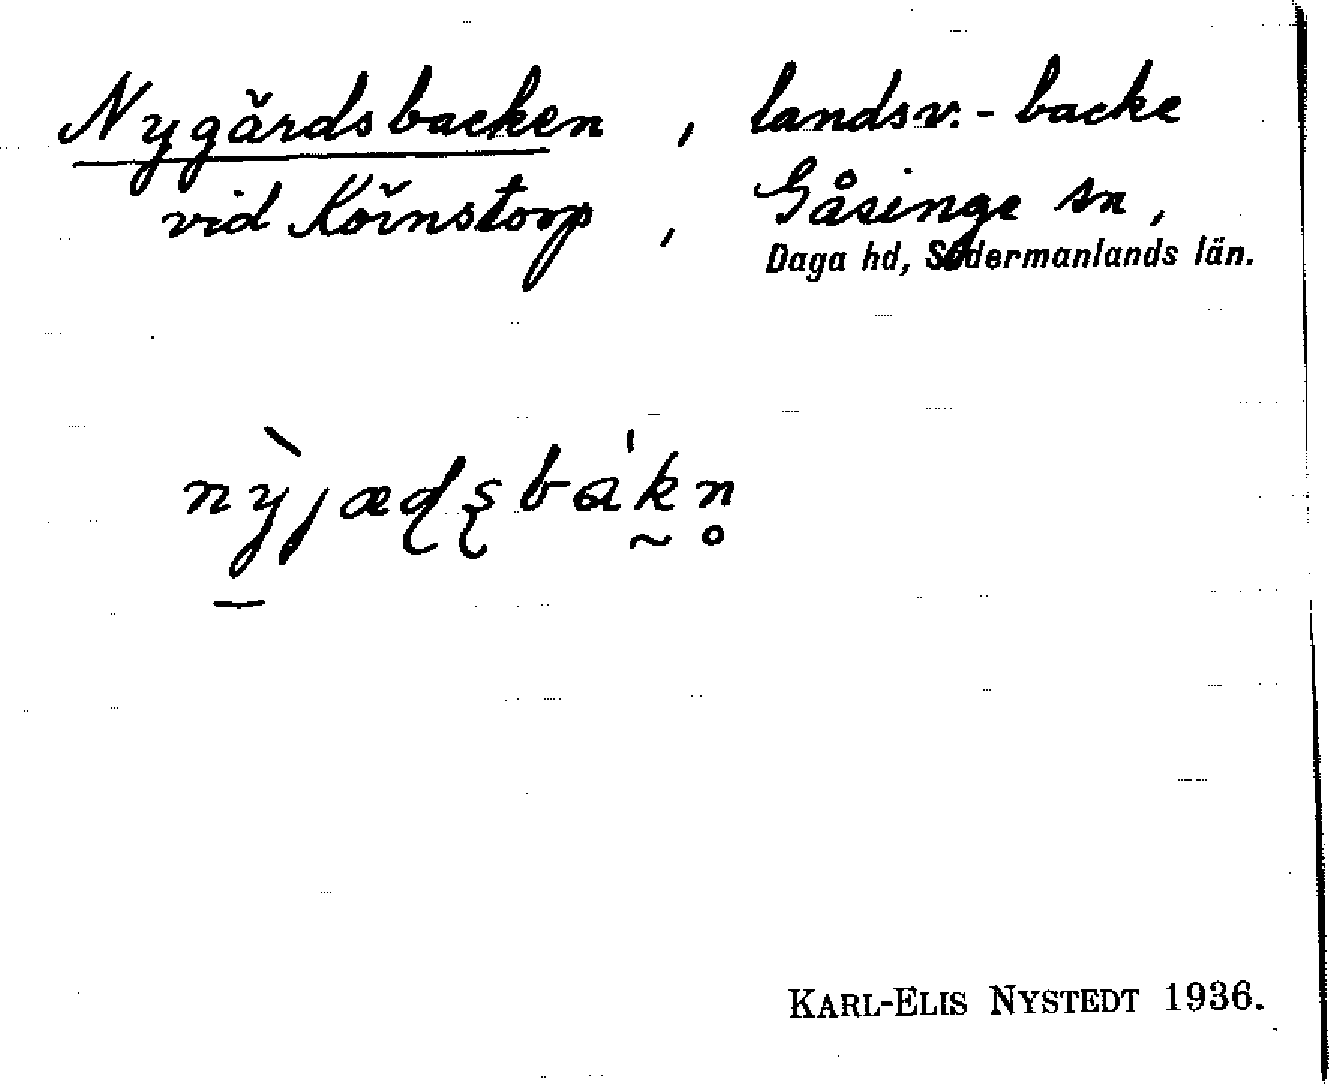 Nygärdsbacken, landsv.-backe
vid Körnstorp, Gåsinge sn,
Daga hd, Södermanlands län.
KARL-ELIS NYSTEDT 1936.